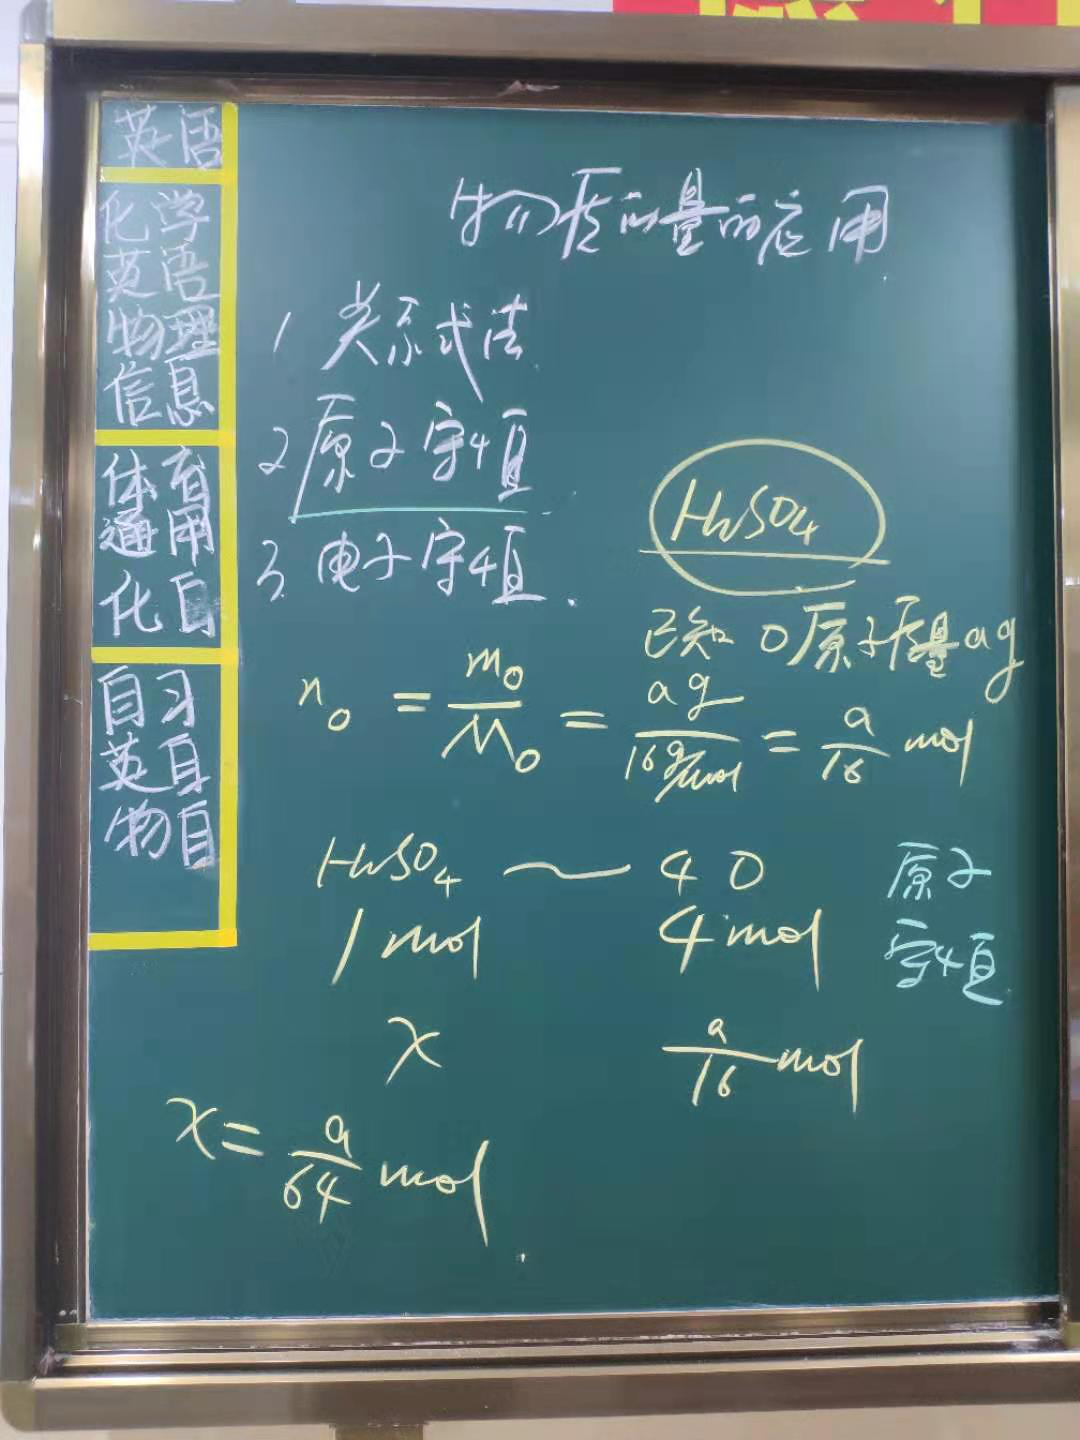 英语
化学
英语
物理
信息
体育
通用
化自
自习
英自
物自
物质的量的应用
1 关系式法
2 原子守恒
3. 电子守恒.
H₂SO₄
已知 O原子质量 a g
n₀ = m₀/M₀ = a g/16 g/mol = a/16 mol
H₂SO₄ ~ 4 O
1 mol 4 mol
原子
守恒
x a/16 mol
x = a/64 mol.